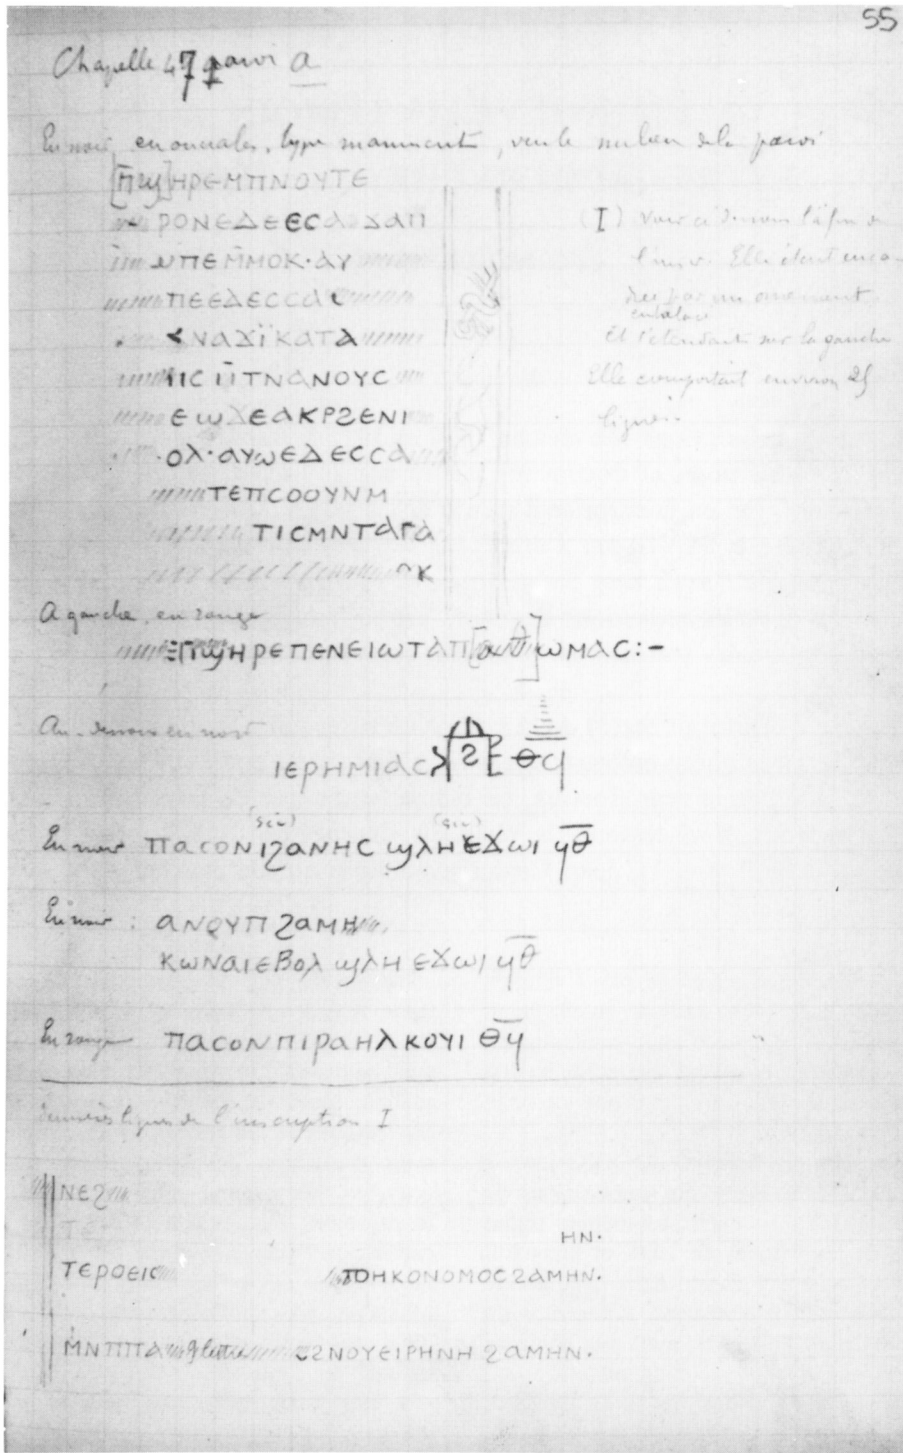 55
Chapelle 47 paroi a
En noir, en onciales, type manuscrit, vers le milieu de la paroi
[ⲡϣ]ⲏⲣⲉⲙⲡⲛⲟⲩⲧⲉ
ⲣⲟⲛⲉⲇⲉⲉⲥⲁ
ⲡⲉⲙⲙⲟⲕ·ⲁⲩ
ⲡⲉⲉⲇⲉⲥⲥⲁ
ⲛⲁϫⲓ̈ⲕⲁⲧⲁ
ⲓⲥ ⲡ̄ⲧⲛⲁⲛⲟⲩⲥ
ⲉⲱϫⲉⲁⲕⲣϩⲉⲛⲓ
ⲟⲗ·ⲁⲩⲱⲉⲇⲉⲥⲥⲁ
ⲧⲉⲡⲥⲟⲟⲩⲛⲙ
ⲧⲓⲥⲙⲛⲧⲁⲅⲁ
ⲕ
(I) Voir ci-dessous la fin de
l'inscr. Elle était enca-
drée par un ornement
entrelacé
et s'étendant sur la gauche
Elle comportait environ 25
lignes.
A gauche, en rouge
ⲡϣⲏⲣⲉⲡⲉⲛⲉⲓⲱⲧⲁⲡ[ⲁ ⲑ]ⲱⲙⲁⲥ:–
Au-dessous en noir
ⲓⲉⲣⲏⲙⲓⲁⲥ ϩ ⲑϥ
(sic) (sic)
En noir ⲡⲁⲥⲟⲛⲓϩⲁⲛⲏⲥ ϣⲗⲏⲉϫⲱⲓ ϥⲑ̅
En noir : ⲁⲛⲟⲩⲡ ϩⲁⲙⲏ
ⲕⲱⲛⲁⲓⲉⲃⲟⲗ ϣⲗⲏ ⲉϫⲱⲓ ϥⲑ̅
En rouge ⲡⲁⲥⲟⲛⲡⲓⲣⲁⲏⲗⲕⲟⲩⲓ ⲑϥ̅
dernières lignes de l'inscription I
ⲛⲉϩ
ⲧⲉ
ⲏⲛ.
ⲧⲉⲣⲟⲉⲓⲥ ⲡⲟⲏⲕⲟⲛⲟⲙⲟⲥϩⲁⲙⲏⲛ.
ⲙⲛⲡⲡⲁ 9 lettres ϩⲛⲟⲩⲉⲓⲣⲏⲛⲏ ϩⲁⲙⲏⲛ.